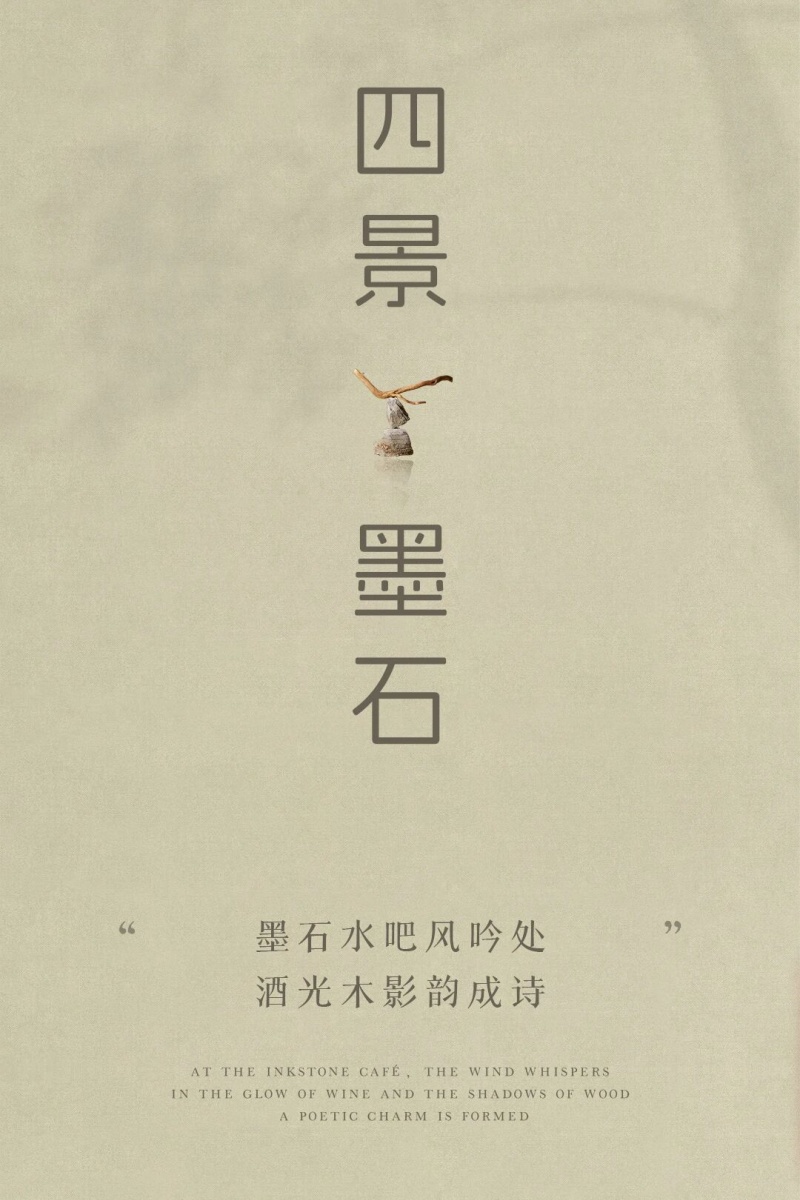 四景
墨石
“墨石水吧风吟处
酒光木影韵成诗”
AT THE INKSTONE CAFÉ , THE WIND WHISPERS
IN THE GLOW OF WINE AND THE SHADOWS OF WOOD
A POETIC CHARM IS FORMED